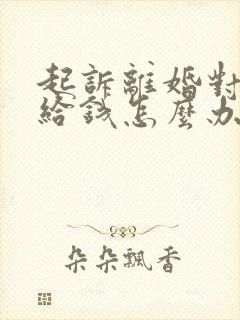 起訴離婚對
給錢怎麼办
朵朵飄香